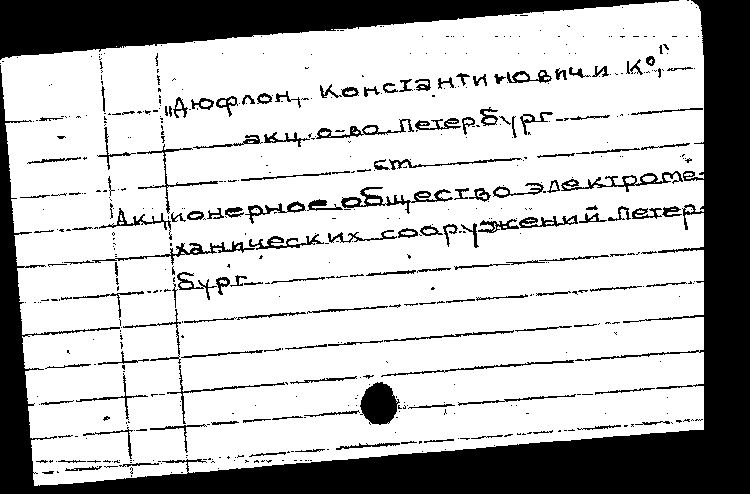 „Дюфлон, Константинович и К⁰,"
акц. о-во. Петербург
см.
Акционерное общество электроме-
ханических сооружений. Петер-
бург